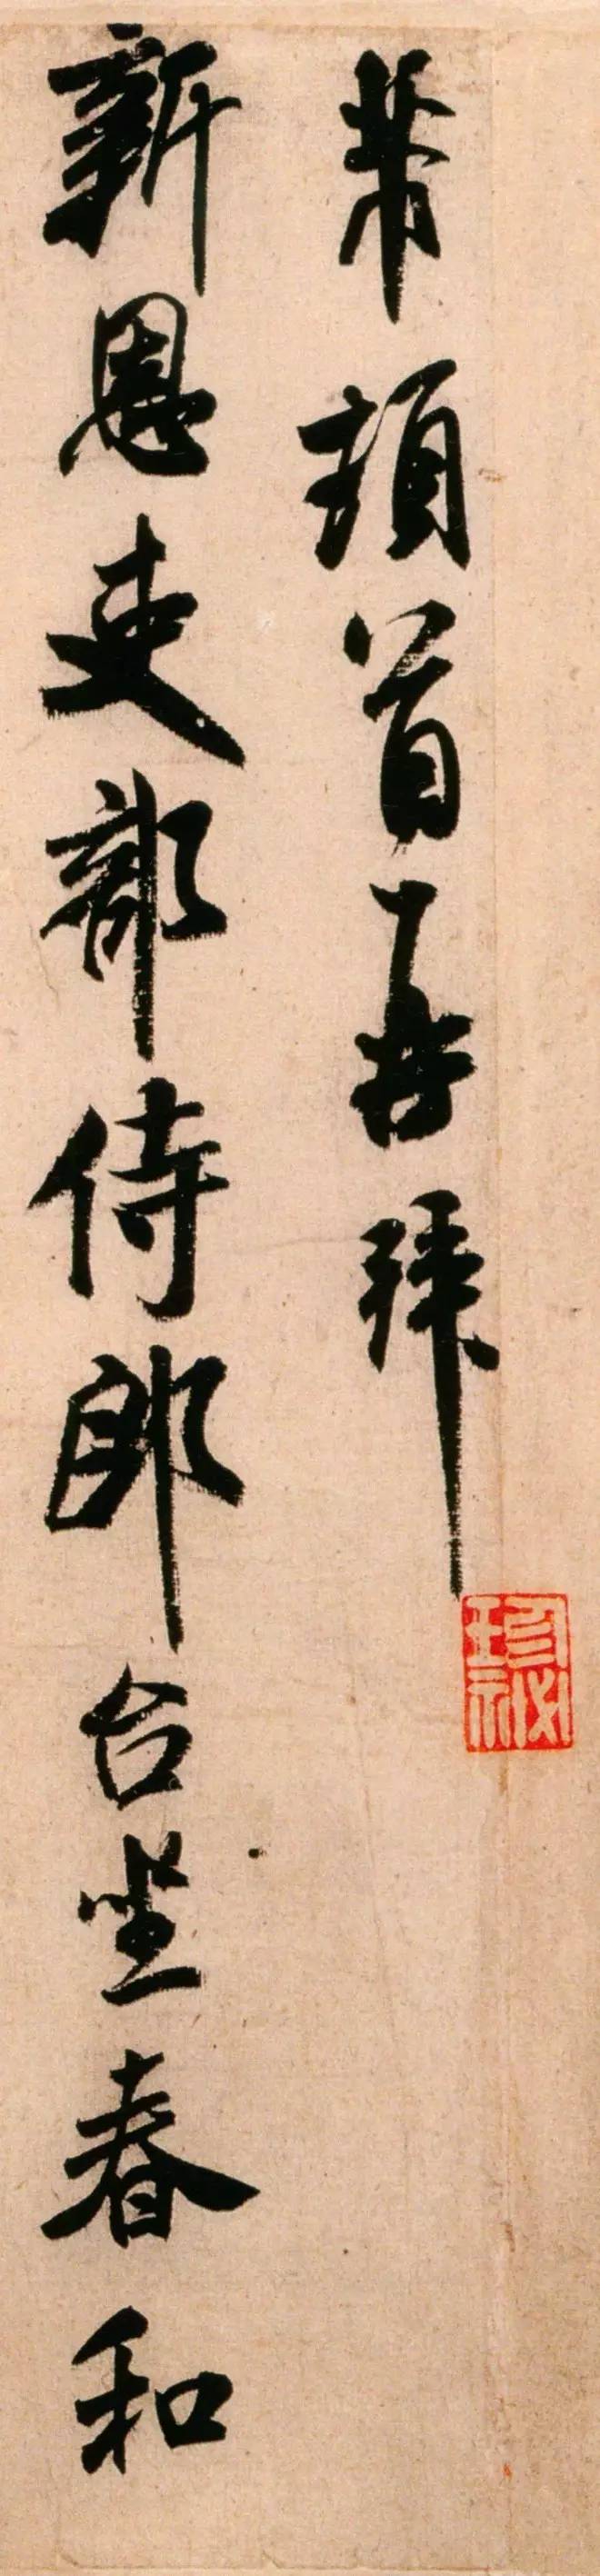 芾頓首再拜
新恩吏部侍郎台坐春和
珍祕